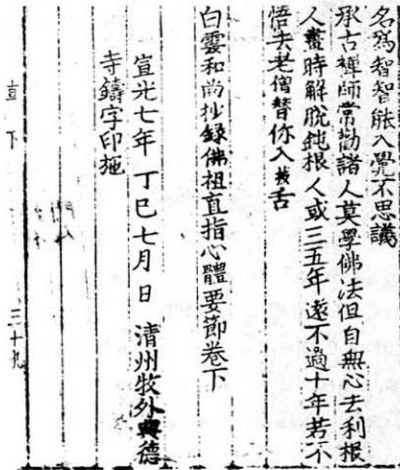 名爲智智能入覺不思議
承古禪師常勸諸人莫學佛法但自無心去利根
人晝時解脫鈍根人或三五年遠不過十年若不
悟去老僧替你入拔舌
白雲和尚抄錄佛祖直指心體要節卷下
宣光七年丁巳七月 日 淸州牧外興德
寺鑄字印施
直下 三十九